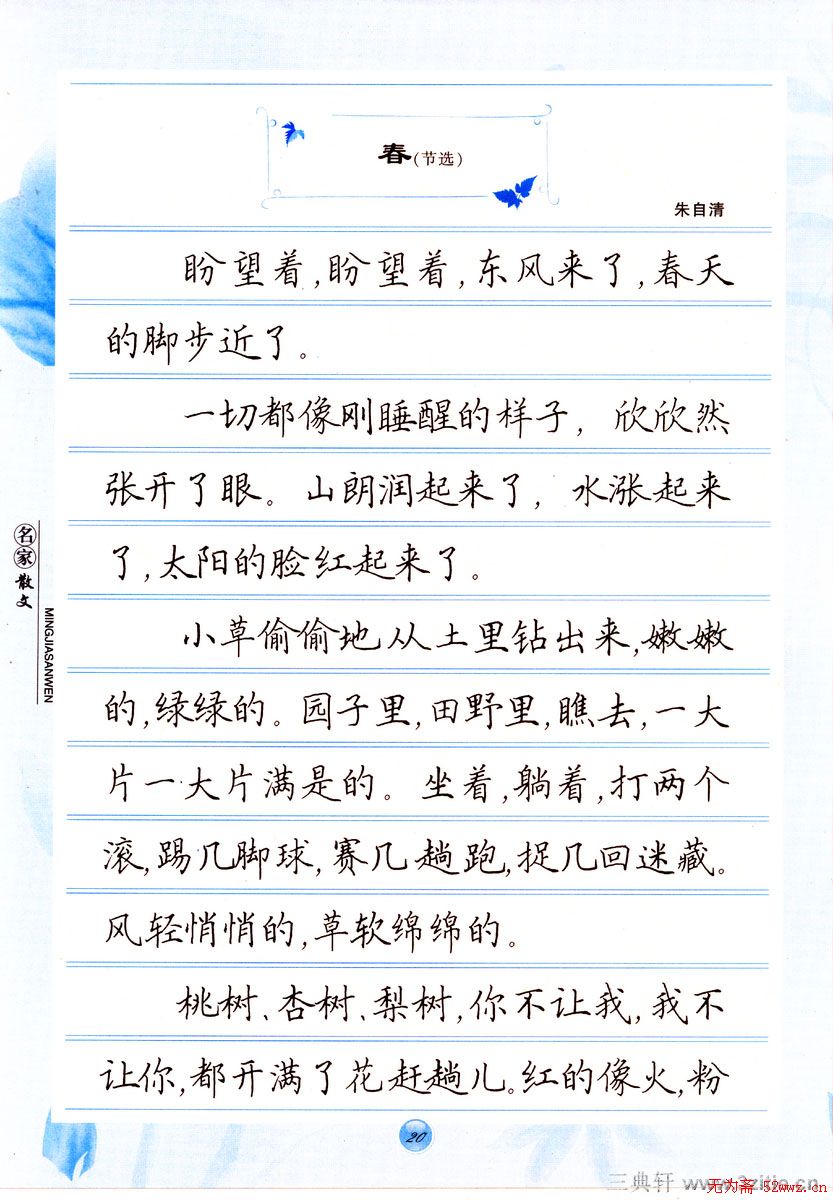 春(节选)
朱自清
盼望着,盼望着,东风来了,春天
的脚步近了。
一切都像刚睡醒的样子,欣欣然
张开了眼。山朗润起来了,水涨起来
了,太阳的脸红起来了。
小草偷偷地从土里钻出来,嫩嫩
的,绿绿的。园子里,田野里,瞧去,一大
片一大片满是的。坐着,躺着,打两个
滚,踢几脚球,赛几趟跑,捉几回迷藏。
风轻悄悄的,草软绵绵的。
桃树、杏树、梨树,你不让我,我不
让你,都开满了花赶趟儿。红的像火,粉
名家散文
MINGJIASANWEN
20
三典轩
无为斋·52wwz.cn